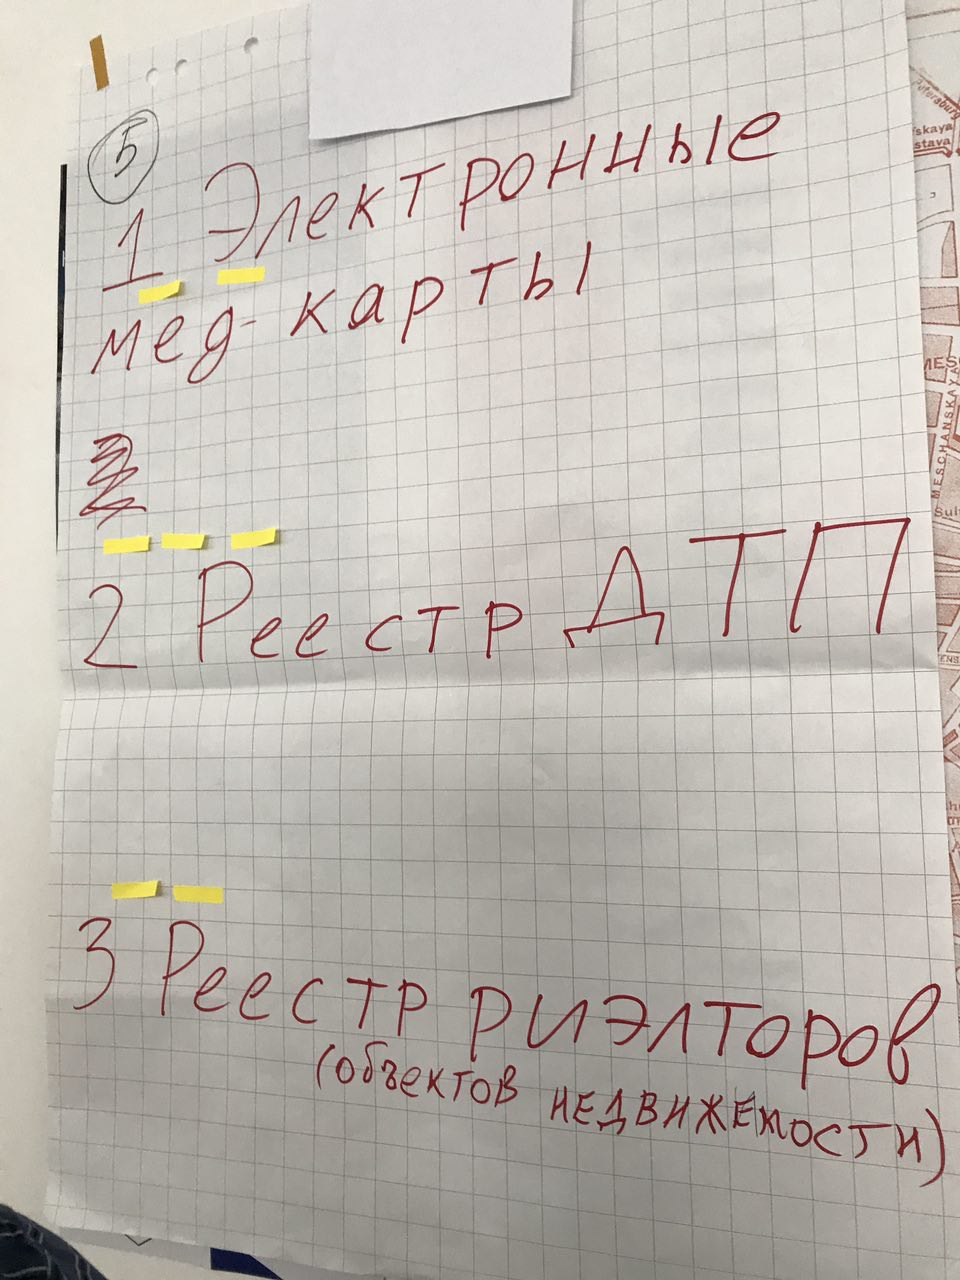 5
1 Электронные
мед-карты
2 Реестр ДТП
3 Реестр риэлторов
(объектов недвижемости)
skaya
stava
MES
MESCHANSKAYA